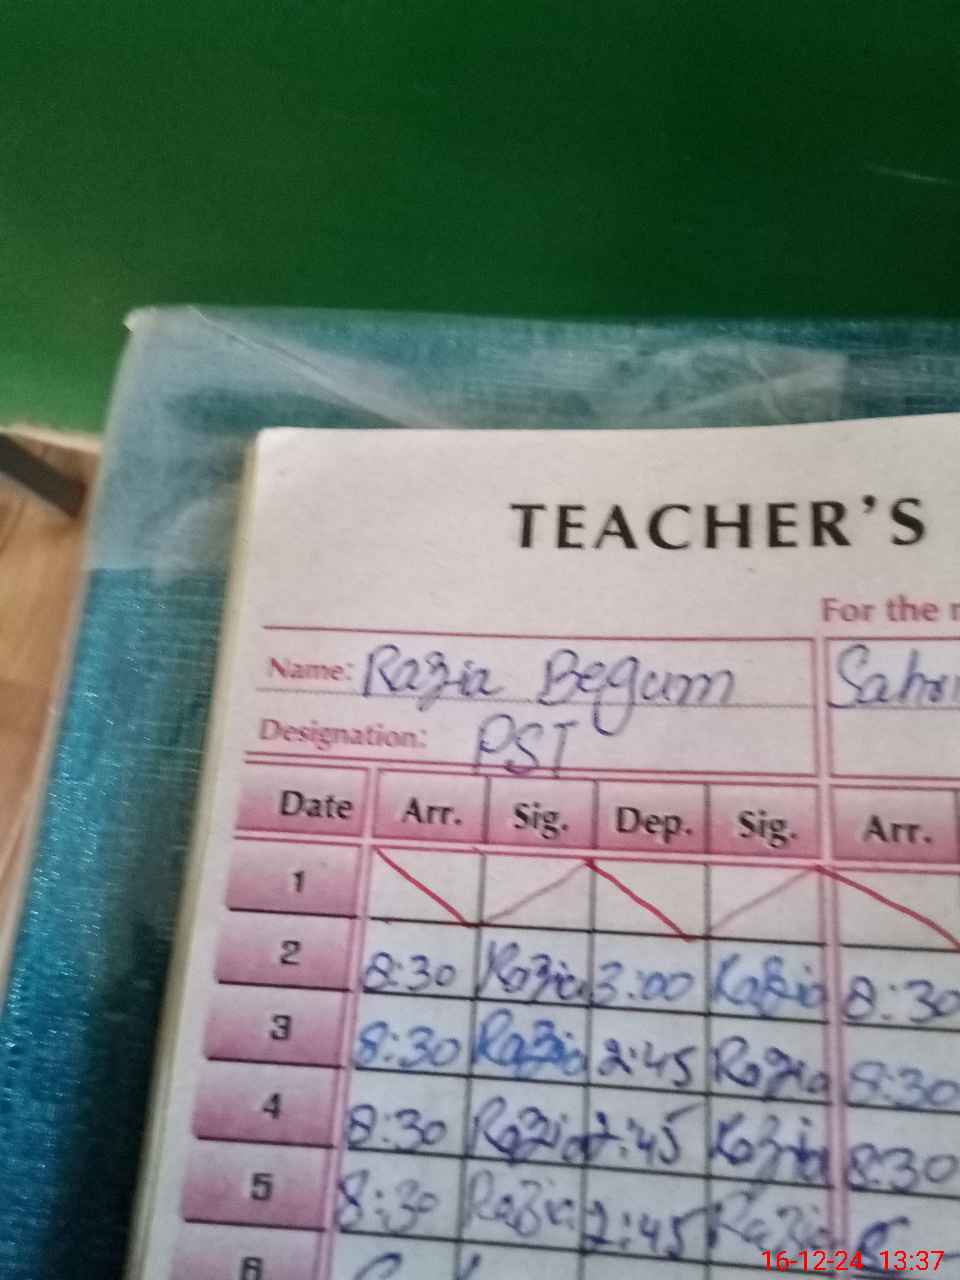 TEACHER'S
For the
Name: Razia Begum
Designation: PST
Date Arr. Sig. Dep. Sig. Arr.
1
2 8:30 Razia 3:00 Razia 8:30
3 8:30 Razia 2:45 Razia 8:30
4 8:30 Razia 2:45 Razia 8:30
5 8:30 Razia 2:45 Razia
6
16-12-24 13:37